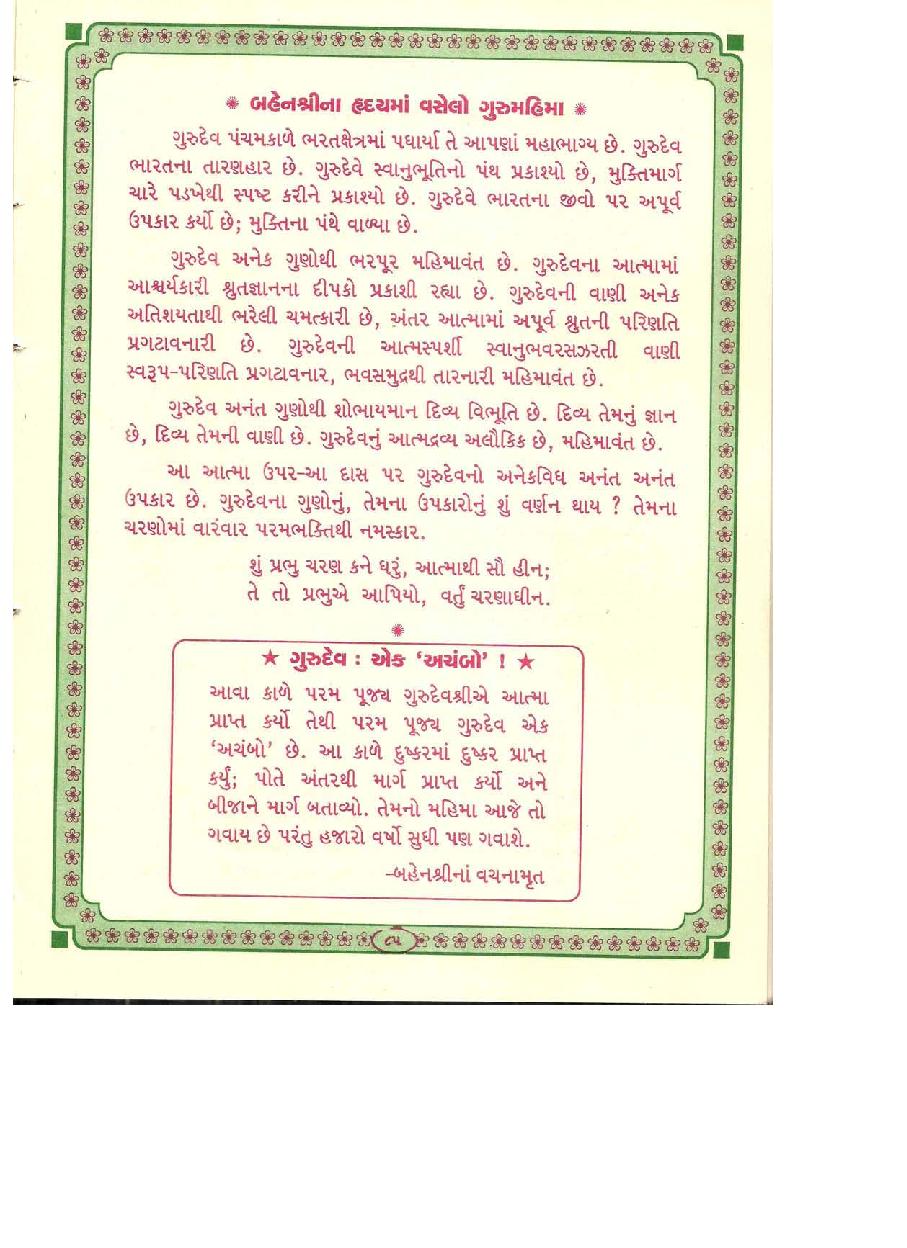 ✺ બહેનશ્રીના હૃદયમાં વસેલો ગુરુમહિમા ✺
ગુરુદેવ પંચમકાળે ભરતક્ષેત્રમાં પધાર્યા તે આપણાં મહાભાગ્ય છે. ગુરુદેવ
ભારતના તારણહાર છે. ગુરુદેવે સ્વાનુભૂતિનો પંથ પ્રકાશ્યો છે, મુક્તિમાર્ગ
ચારે પડખેથી સ્પષ્ટ કરીને પ્રકાશ્યો છે. ગુરુદેવે ભારતના જીવો પર અપૂર્વ
ઉપકાર કર્યો છે; મુક્તિના પંથે વાળ્યા છે.
ગુરુદેવ અનેક ગુણોથી ભરપૂર મહિમાવંત છે. ગુરુદેવના આત્મામાં
આશ્ચર્યકારી શ્રુતજ્ઞાનના દીપકો પ્રકાશી રહ્યા છે. ગુરુદેવની વાણી અનેક
અતિશયતાથી ભરેલી ચમત્કારી છે, અંતર આત્મામાં અપૂર્વ શ્રુતની પરિણતિ
પ્રગટાવનારી છે. ગુરુદેવની આત્મસ્પર્શી સ્વાનુભવરસઝરતી વાણી
સ્વરૂપ-પરિણતિ પ્રગટાવનાર, ભવસમુદ્રથી તારનારી મહિમાવંત છે.
ગુરુદેવ અનંત ગુણોથી શોભાયમાન દિવ્ય વિભૂતિ છે. દિવ્ય તેમનું જ્ઞાન
છે, દિવ્ય તેમની વાણી છે. ગુરુદેવનું આત્મદ્રવ્ય અલૌકિક છે, મહિમાવંત છે.
આ આત્મા ઉપર-આ દાસ પર ગુરુદેવનો અનેકવિધ અનંત અનંત
ઉપકાર છે. ગુરુદેવના ગુણોનું, તેમના ઉપકારોનું શું વર્ણન થાય ? તેમના
ચરણોમાં વારંવાર પરમભક્તિથી નમસ્કાર.
શું પ્રભુ ચરણ કને ધરું, આત્માથી સૌ હીન;
તે તો પ્રભુએ આપિયો, વર્તું ચરણાધીન.
✺
★ ગુરુદેવ : એક ‘અચંબો’ ! ★
આવા કાળે પરમ પૂજ્ય ગુરુદેવશ્રીએ આત્મા
પ્રાપ્ત કર્યો તેથી પરમ પૂજ્ય ગુરુદેવ એક
‘અચંબો’ છે. આ કાળે દુષ્કરમાં દુષ્કર પ્રાપ્ત
કર્યું; પોતે અંતરથી માર્ગ પ્રાપ્ત કર્યો અને
બીજાને માર્ગ બતાવ્યો. તેમનો મહિમા આજે તો
ગવાય છે પરંતુ હજારો વર્ષો સુધી પણ ગવાશે.
-બહેનશ્રીનાં વચનામૃત
૯૫